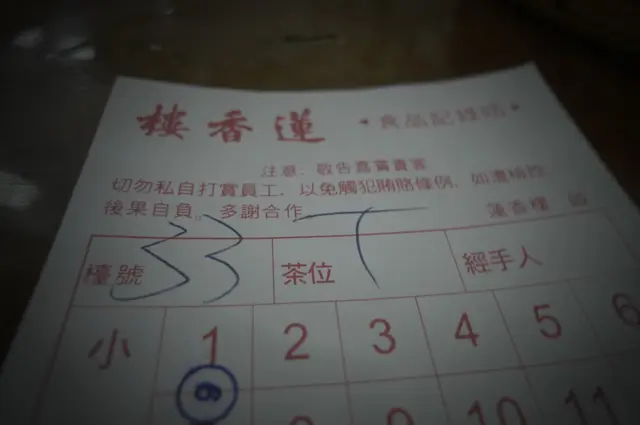 樓香蓮 食品記錄咭
注意：敬告嘉賞貴客
切勿私自打賞員工，以免觸犯賄賂條例，如遭檢控
後果自負。多謝合作。 蓮香樓 啟
檯號 33 茶位 經手人
小 1 2 3 4 5 6
9 10 11